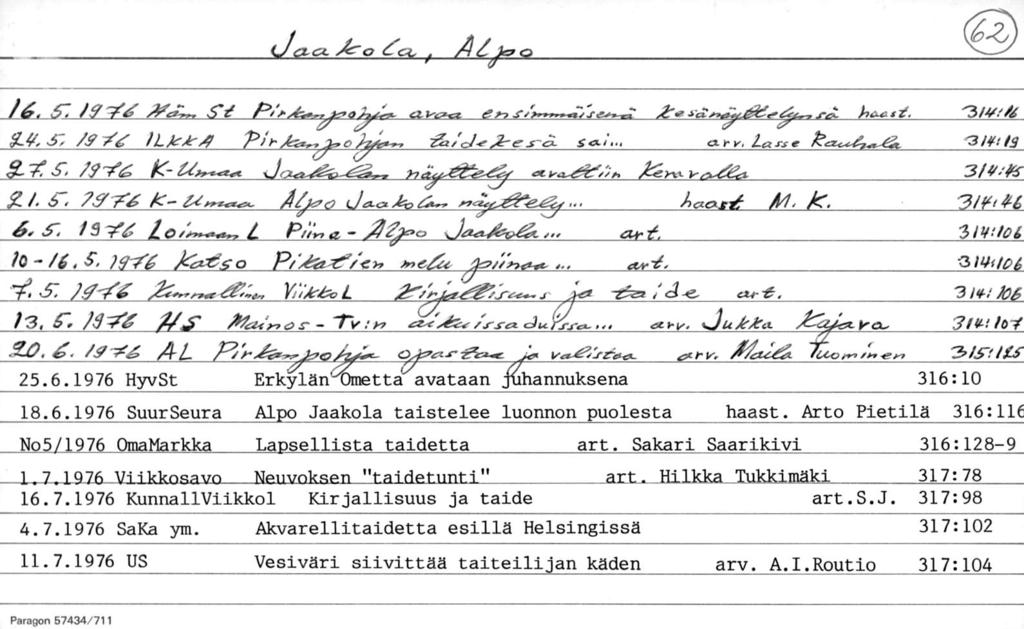 Jaakola, Alpo 62
16.5.1976 Häm St Pirkanpohja avaa ensimmäisenä kesänäyttelynsä haast. 314:16
24.5.1976 ILKKA Pirkanpohjan taidekesä sai... arv. Lasse Rauhala 314:19
27.5.1976 K-Umaa Jaakolan näyttely avattiin Keravalla 314:45
21.5.1976 K-Umaa Alpo Jaakolan näyttely... haast M.K. 314:46
6.5.1976 Loimaan L Piina-Alpo Jaakola... art. 314:106
10-16.5.1976 Katso Pikatien melu piinaa... art. 314:106
7.5.1976 Kunnallinen Viikko L Kirjallisuus ja taide art. 314:106
13.5.1976 HS Mainos-Tv:n aikuissaduissa... arv. Jukka Kajava 314:107
20.6.1976 AL Pirkanpohja opastaa ja valistaa arv. Maila Tuominen 315:125
25.6.1976 HyvSt Erkylän Ometta avataan juhannuksena 316:10
18.6.1976 SuurSeura Alpo Jaakola taistelee luonnon puolesta haast. Arto Pietilä 316:116
No5/1976 OmaMarkka Lapsellista taidetta art. Sakari Saarikivi 316:128-9
1.7.1976 Viikkosavo Neuvoksen "taidetunti" art. Hilkka Tukkimäki 317:78
16.7.1976 KunnallViikkol Kirjallisuus ja taide art.S.J. 317:98
4.7.1976 SaKa ym. Akvarellitaidetta esillä Helsingissä 317:102
11.7.1976 US Vesiväri siivittää taiteilijan käden arv. A.I.Routio 317:104
Paragon 57434/711